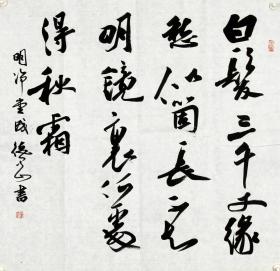 白髮三千丈緣
愁似箇長不知
明鏡裏何處
得秋霜